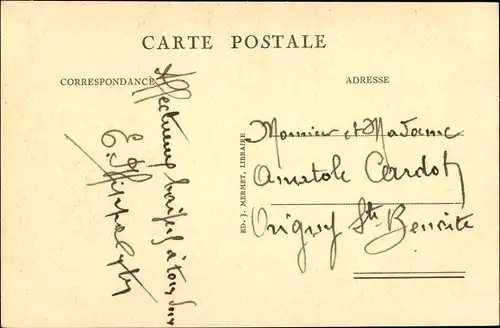 CARTE POSTALE
CORRESPONDANCE
ADRESSE
Affectueux baisers à tous deux
E. Hippolyte
ED. J. MERMET, LIBRAIRE
Monsieur et Madame
Anatole Cardot
Origny Ste Benoite